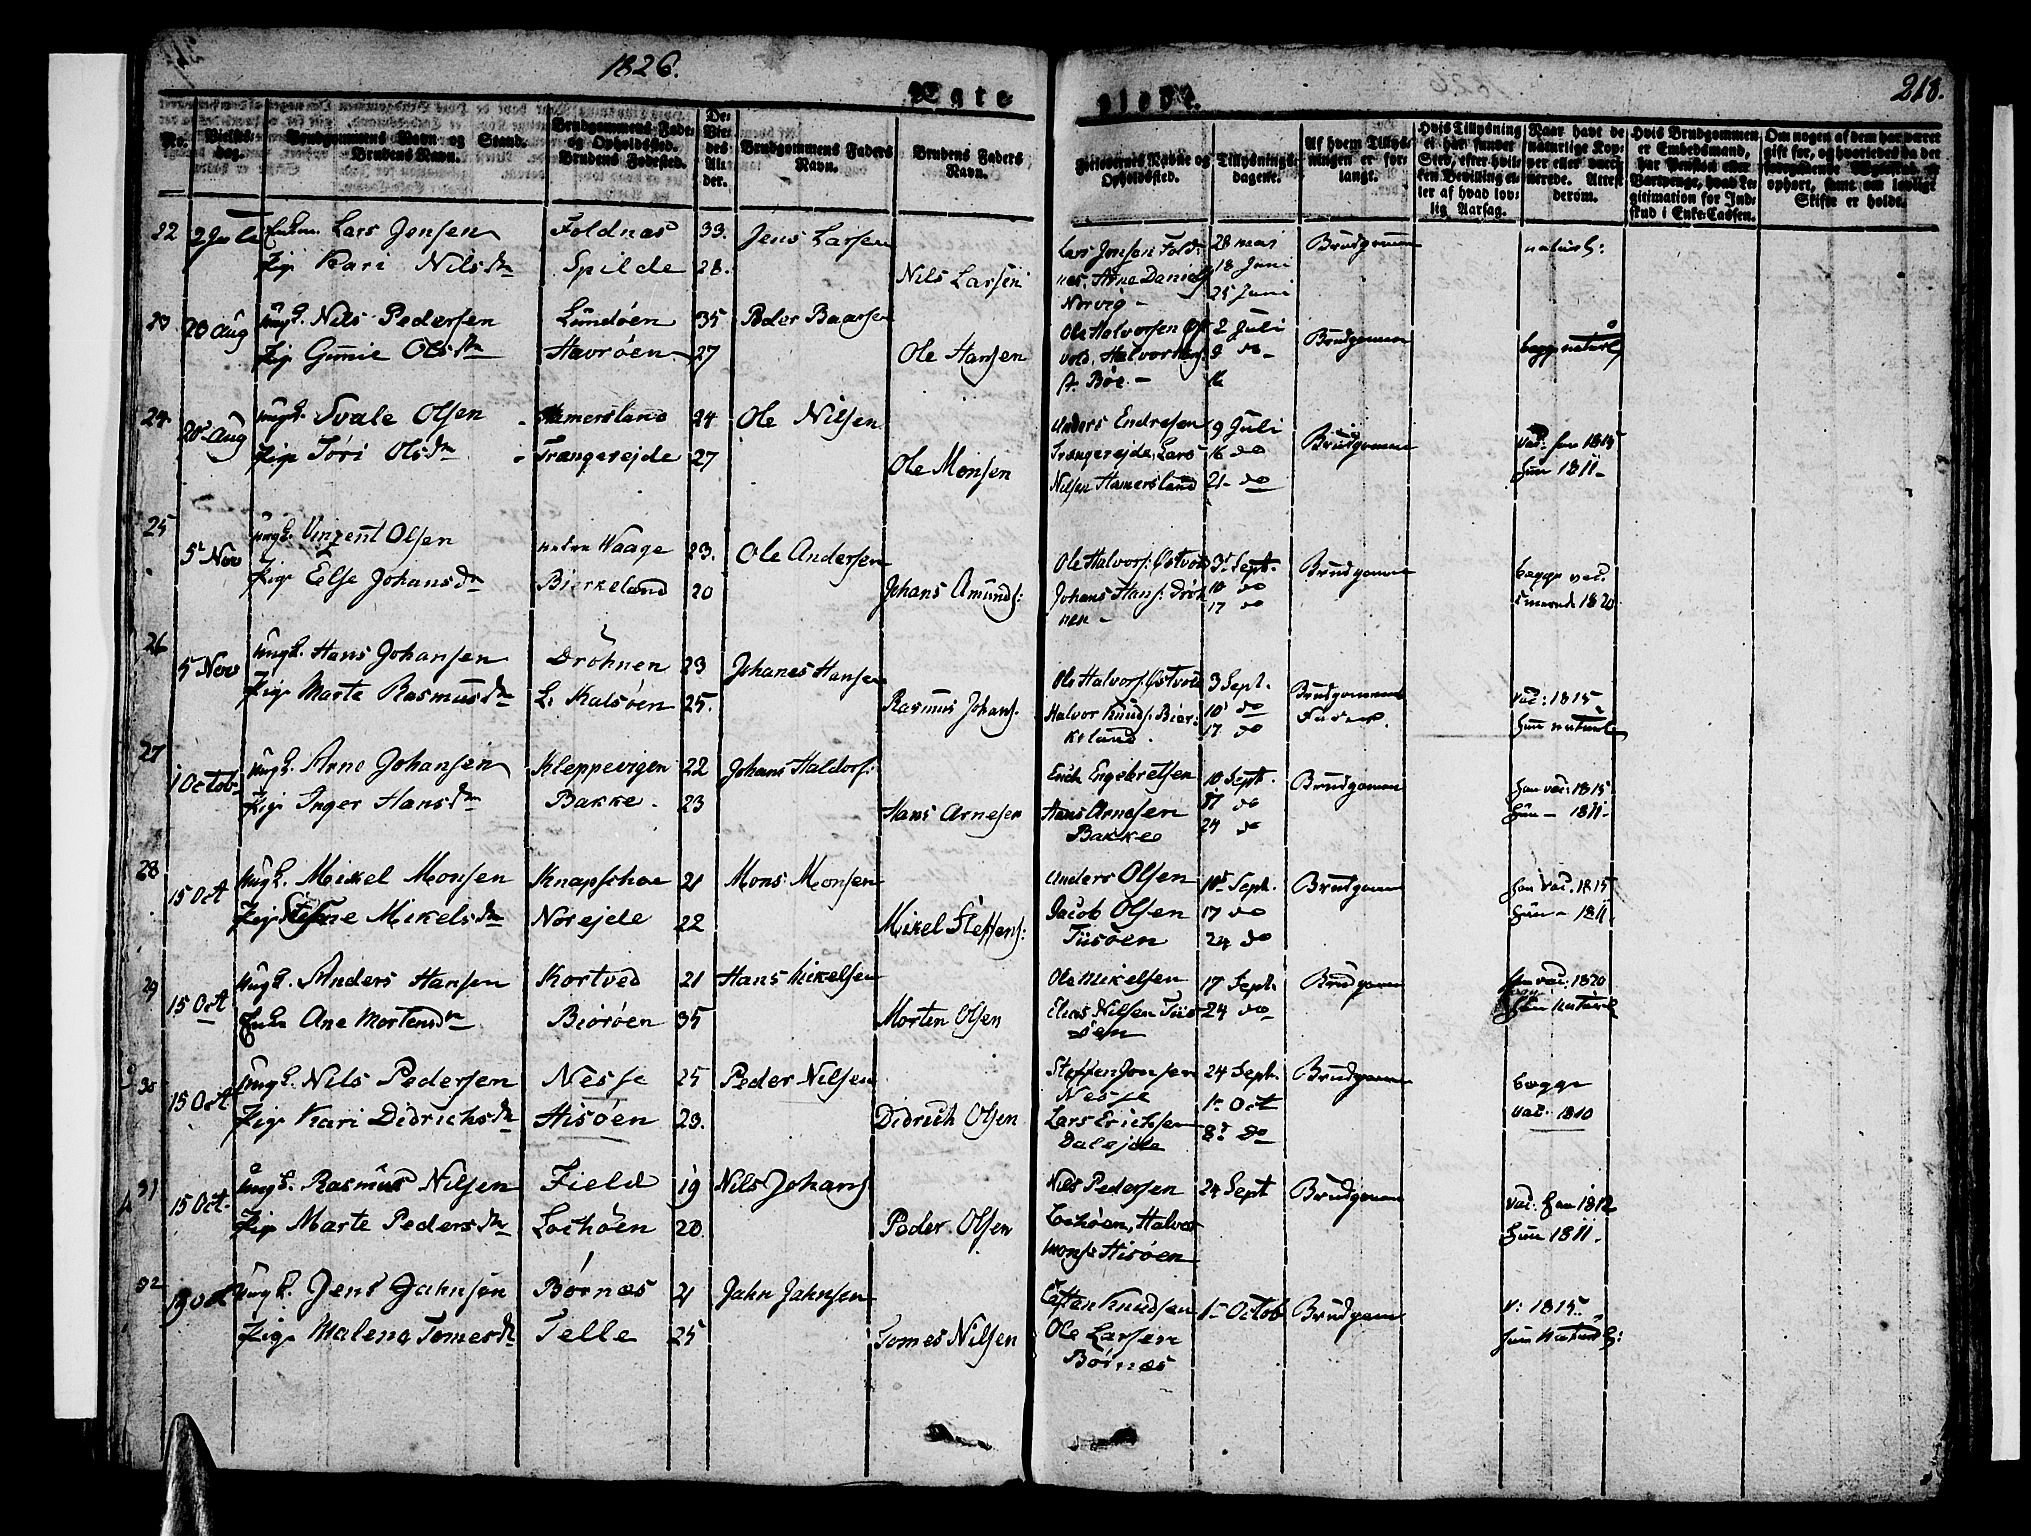 1826.
218.
Ægte
viede.
No.
Vielses-
dag.
Brudgommens Navn og Stand.
Brudens Navn.
Brudgommens Føde-
og Opholdssted.
Brudens Fødested.
De
Vie-
des
Al-
der.
Brudgommens Faders
Navn.
Brudens Faders
Navn.
Forlovernes Navne og
Opholdssted.
Tillysnings-
dagene.
Af hvem Tillys-
ningen er for-
langt.
Hvis Tillysning
ei har fundet
Sted, efter hvil-
ken Bevilling el-
ler af hvad lov-
lig Aarsag.
Naar havt de
naturlige Kop-
per eller vacci-
nerede. Attest
derom.
Hvis Brudgommen
er Embedsmand,
har Pension eller
Vartpenge, hvad Le-
gitimation for Ind-
skud i Enke-Cassen.
Om nogen af dem har været
gift før, og hvorledes da det
foregaaende Ægteskab er
ophørt, samt om lovligt
Skifte er holdt.
22 2 Juli Enkm. Lars Jensen Foldnæs 33. Jens Larsen
Pige Kari Nilsdr Spilde 28. Nils Larsen
Lars Jensen Fold-
næs. Arne Daniels
Norvig -
28 mai
18 Juni
25 Juni
Brudgommen
naturl:
23 20 Aug Ungk. Nils Pedersen Lundøen 35 Peder Baarsen
Pige Gunie Olsdr Havrøen 27 Ole Hansen
Ole Halvorsen Øst
vold, Halvor
Bøe -
2 Juli
9 do -
16
Brudgommen
begge naturl
24. 20 Aug Ungk. Svale Olsen Hamersland 24 Ole Nilsen
Pige Tøri Olsdr Trangereide 27 Ole Monsen
Anders Endresen
Trangereide, Lars
Nilsen Hamersland
9 Juli
16 do
21 - do
Brudgommen
vac: han 1815
hun 1811 -
25 5 Nov Ungk. Vinzent Olsen Waage 23. Ole Andersen
Pige Else Johansdr Bierkeland 20 Johans Amunds:
Ole Halvors: Østvold
Johans Hans: Drøh
nen -
3 Sept.
10 do
17 do
Brudgommen
begge vac.
1820
26 5 Nov Ungk. Hans Johansen Drøhnen 23 Johanes Hansen
Pige Marte Rasmusdr L. Kalsøen 25. Rasmus Johans.
Ole Halvors: Østvold
Halvor Knuds: Bier-
keland.
3 Sept.
10 do
17 do
Brudgommens
Fader.
vac: 1815
hun naturl
27 1 Octob Ungk. Arne Johansen Kleppevigen 22 Johans Haldors:
Pige Inger Hansdr Bakke. 23 Hans Arnesen
Erich Engebretsen
Hans Arnesen
Bakke
10 Sept.
17 do
24 do
Brudgommen
han vac: 1815
hun - 1811
28 15 Oct Ungk. Mikel Monsen Knapschoe 21 Mons Monsen
Pige Mikelsdr Norejde 22 Mikel Steffens:
Anders Olsen
Jacob Olsen
Tiisøen
10 Sept.
17 do
24 do
Brudgommen
han vac. 1815
hun - 1811
29 15 Oct Ungk. Anders Hansen Kortved 21 Hans Mikelsen
Enke Ane Mortensdr Biørøen 35 Morten Olsen
Ole Mikelsen
Elias Nilsen Tiis
øen
17 Sept.
24 do
Brudgommen
han vac: 1820
hun naturl
30 15 Oct Ungk. Nils Pedersen Nesse 25 Peder Nilsen
Pige Kari Didrichsdr Hisøen 23. Didrich Olsen
Steffen Jensen
Nesse
Lars Erichsen
Dalejde
24 Sept.
1 Oct
8 do
Brudgommen
begge
vac. 1810
31 15 Oct. Ungk. Rasmus Nilsen Field 19 Nils Johans
Pige Marte Pedersdr Lochøen 20 Peder Olsen
Niels Pedersen
Lochøen, Halvor
Mons: Hisøen
24 Sept
Brudgommen
vac. han 1812
hun 1811 -
32 19 Oct Ungk. Jens Jahnsen Børnæs 21 Jahn Jahnsen
Pige Malena Tomesdr Telle 25 Tomes Nilsen
Casten Knudsen
Ole Larsen
Børnæs
1 Octob
Brudgommen
v: 1815
hun naturl: